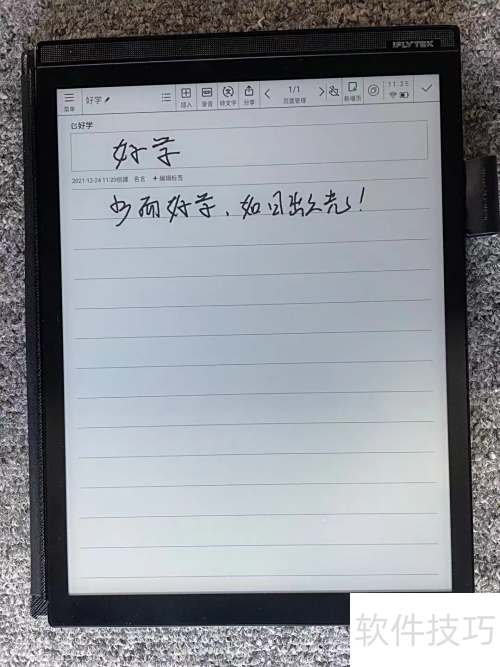 iFLYTEK
菜单 好学 插入 录音 转文字 分享 1/1 页面管理 新增页 11:35
好学
好学
2021-12-24 11:20创建 名言 + 编辑标签
少而好学，如日出之光！
软件技巧